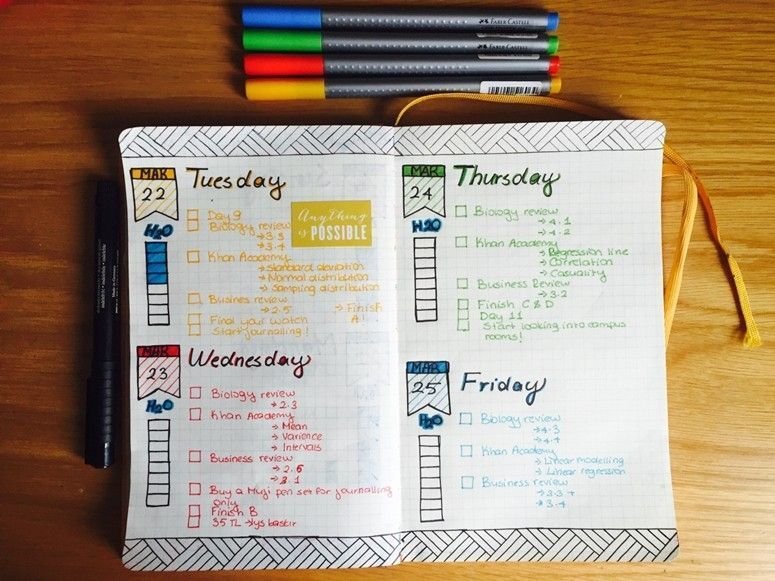 FABER CASTELL
FABER CASTELL
FABER CASTELL
MAR
22
Tuesday
H2O
Day 9
Biology review
→ 3.3
→ 3.4
Anything
is POSSIBLE
Khan Academy
→ Standard deviation
→ Normal distribution
→ Sampling distribution
Business review
→ 2.5
→ Finish
A!
Find your watch
Start journalling!
MAR
23
Wednesday
H2O
Biology review
→ 2.3
Khan Academy
→ Mean
→ Varience
→ Intervals
Business review
→ 2.6
→ 3.1
Buy a Muji pen set for journalling
only
Finish B
35 TL → lys bastır
MAR
24
Thursday
H2O
Biology review
→ 4.1
→ 4.2
Khan Academy
→ Regression line
→ Correlation
→ Casuality
Business Review
→ 3.2
Finish C & D
Day 11
Start looking into campus
rooms!
MAR
25
Friday
H2O
Biology review
→ 4.3
→ 4.4
Khan Academy
→ Linear modelling
→ Linear regression
Business review
→ 3.3 +
→ 3.4